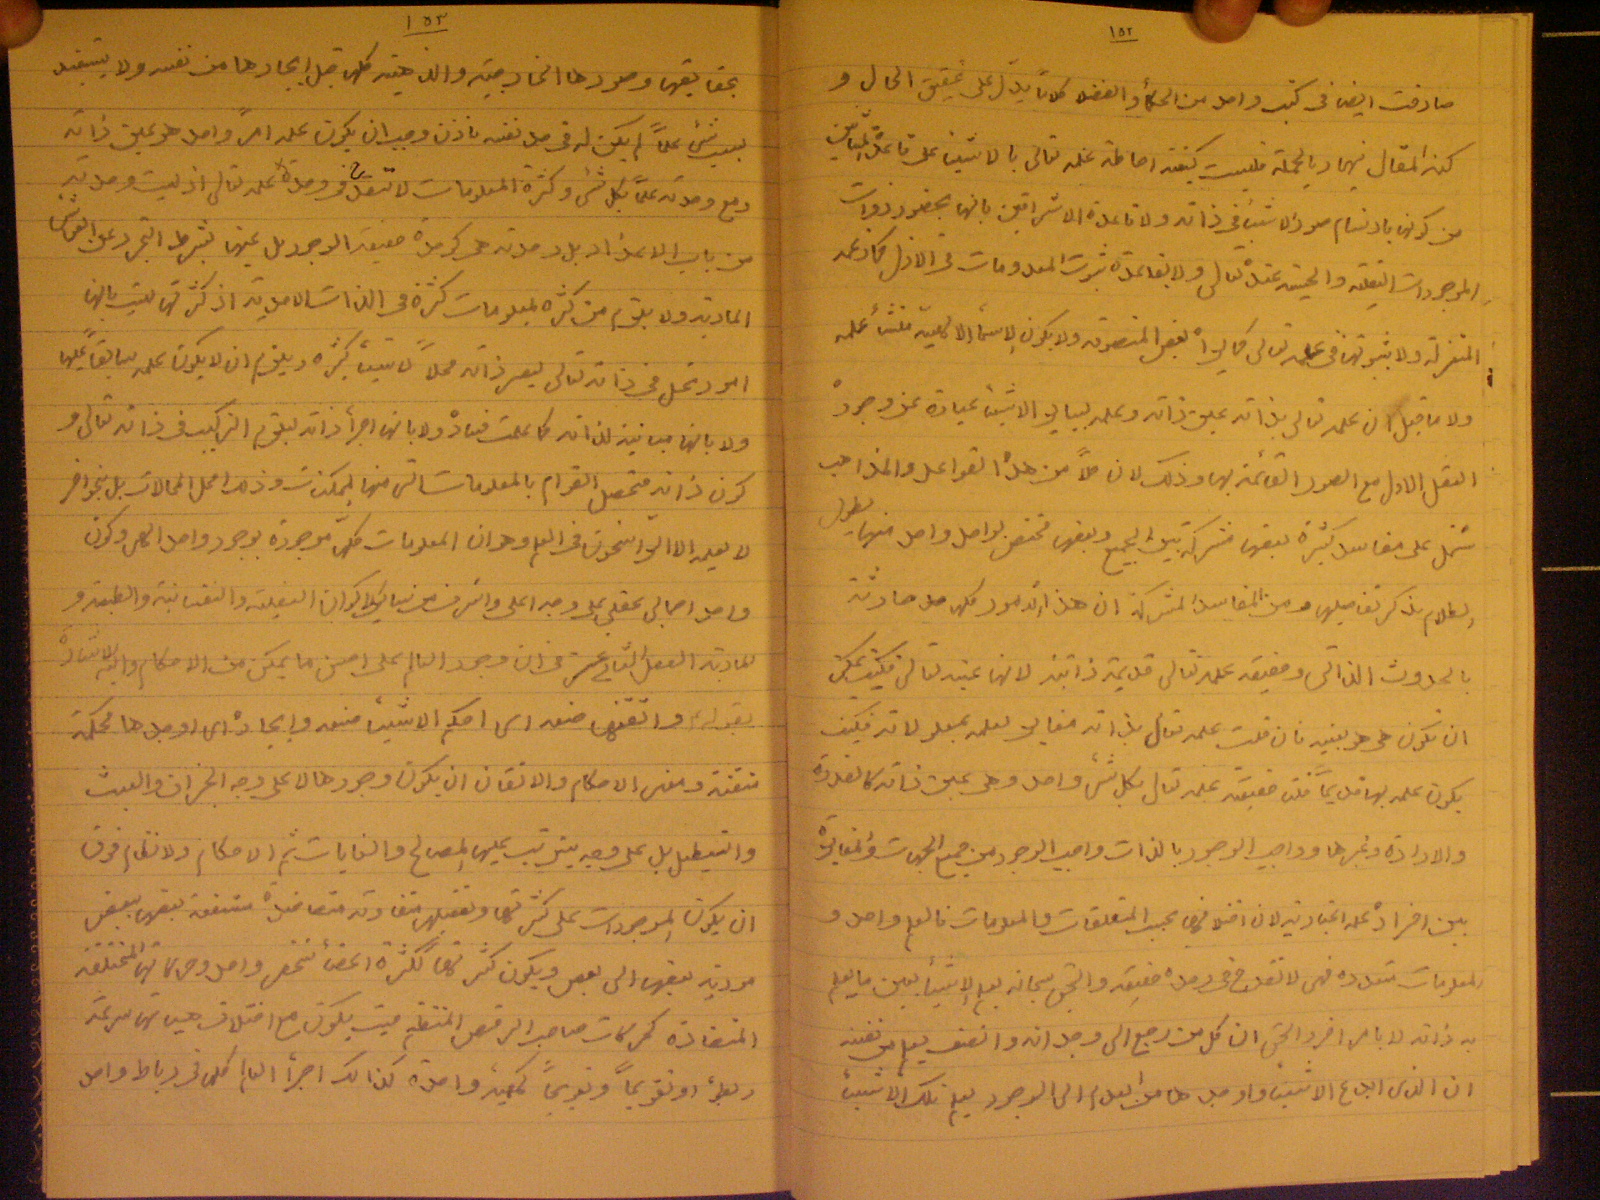 ١٥٢
صادفت ايضا فى كتب واحد من الحكماء والفضلاء كلاما يدل على تحقيق الحال و
كنه المقال فيها وبالجملة فليست كيفية احاطة علمه تعالى بالاشياء على قاعدة المشائين
من كونها بارتسام صور الاشياء فى ذاته ولا قاعدة الاشراقيين بانها بحضور ذوات
الموجودات العقلية والحسية عنده تعالى ولا بقاعدة ثبوت المعدومات فى الازل كما زعمه
المعتزلة ولا ثبوتها فى علمه تعالى كما يراه بعض المتصوفة ولا بكون الاسماء الالهية منشأ علمه
ولا ما قيل ان علمه تعالى بذاته عين ذاته وعلمه بساير الاشياء عبارة عن وجود
العقل الاول مع الصور القائمة بها وذلك لان كلا من هذه القواعد والمذاهب
تشتمل على مفاسد كثيرة بعضها مشتركة بين الجميع وبعضها مختص بواحد واحد منها يطول
الكلام بذكر تفاصيلها ومن المفاسد المشتركة ان هذه الامور كلها حادثة
بالحدوث الذاتى وحقيقة علمه تعالى قديمة ذاتية لانها عينه تعالى فكيف يمكن
ان تكون هى هو بعينه فان قلت علمه تعالى بذاته مغاير لعلمه بمعلولاته فكيف
يكون علمه بها قديما قلت حقيقة علمه تعالى بكل شئ واحد وهى عين ذاته كالقدرة
والارادة وغيرها وواجب الوجود بالذات واجب الوجود من جميع الجهات والمغايرة
بين افراد علمه اعتبارية لان اختلافها بحسب المتعلقات والمعلومات فالعلم واحد و
المعلومات متعدده فهى لا تقدح فى وحدة حقيقته والحق سبحانه يعلم الاشياء بعين ما يعلم
به ذاته لا بامر اخر والحق ان كل من رجع الى وجدانه وانصف يعلم من نفسه
ان الذى ابدع الاشياء واوجدها من العدم الى الوجود يعلم تلك الاشياء
١٥٣
بحقايقها وصورها الخارجية والذهنية كلها قبل ايجادها من نفسه ولا يستفيد
بسبب شئ علما لم يكن له فى حد نفسه فاذن وجب ان يكون علمه امرا واحدا هو عين ذاته
ومع وحدته علما بكل شئ وكثرة المعلومات لا تقدح فى وحدة علمه تعالى اذ ليست وحدته
من باب الاعداد بل وحدته هى كوحدة حقيقة الوجود بل عينها بشرط التجرد عن الغواشى
المادية ولا يلزم من كثرة المعلومات كثرة فى الذات الاحدية اذ كثرتها ليست بانها
امور تحل فى ذاته تعالى ليصير ذاته محلا لاشياء كثيرة ويلزم ان لا يكون علمه سابقا عليها
ولا بانها مباينة لذاته كما علمت فساده ولا بانها اجزاء ذاته ليلزم التركيب فى ذاته تعالى و
كون ذاته متحصل القوام بالمعلومات التى منها الممكنات وذلك امحل المحالات بل بنحو اخر
لا يعلمه الا الراسخون فى العلم وهو ان المعلومات كلها موجودة بوجود واحد الهى وكون
واحد اجمالى عقلى على وجه اعلى واشرف من سائر الاكوان العقلية والنفسانية والطبيعية و
المادية الفصل التاسع عشر فى ان وجود العالم على احسن ما يمكن من الاحكام واليه الاشارة
بقوله واتقنها صنعه اى احكم الاشياء صنعه وايجاده اى اوجدها محكمة
متقنة ومعنى الاحكام والاتقان ان يكون وجودها لا على وجه الجزاف والعبث
والتعطيل بل على وجه يترتب عليها المصالح والغايات ثم الاحكام ولانظام فوق
ان يكون الموجودات على كثرتها وتفصيلها متفاوتة متعاضدة منتفعة بعضها ببعض
مؤدية بعضها الى بعض ويكون كثرتها ككثرة اعضاء شخص واحد وحركاتها المختلفة
المتضادة كحركات صاحب الرقص المنتظم حيث يكون مع اختلاف هيأتها سرعة
وبطؤا وتقويما وتعويجا كهيئة واحدة كذلك اجزاء العالم كلها فى رباط واحد